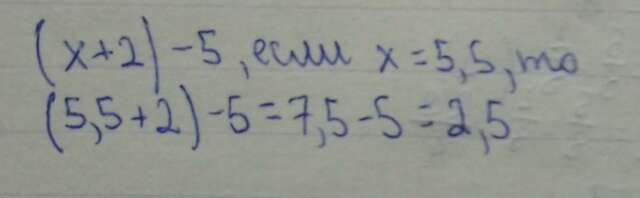 (x+2)-5, если x=5,5, то
(5,5+2)-5=7,5-5=2,5